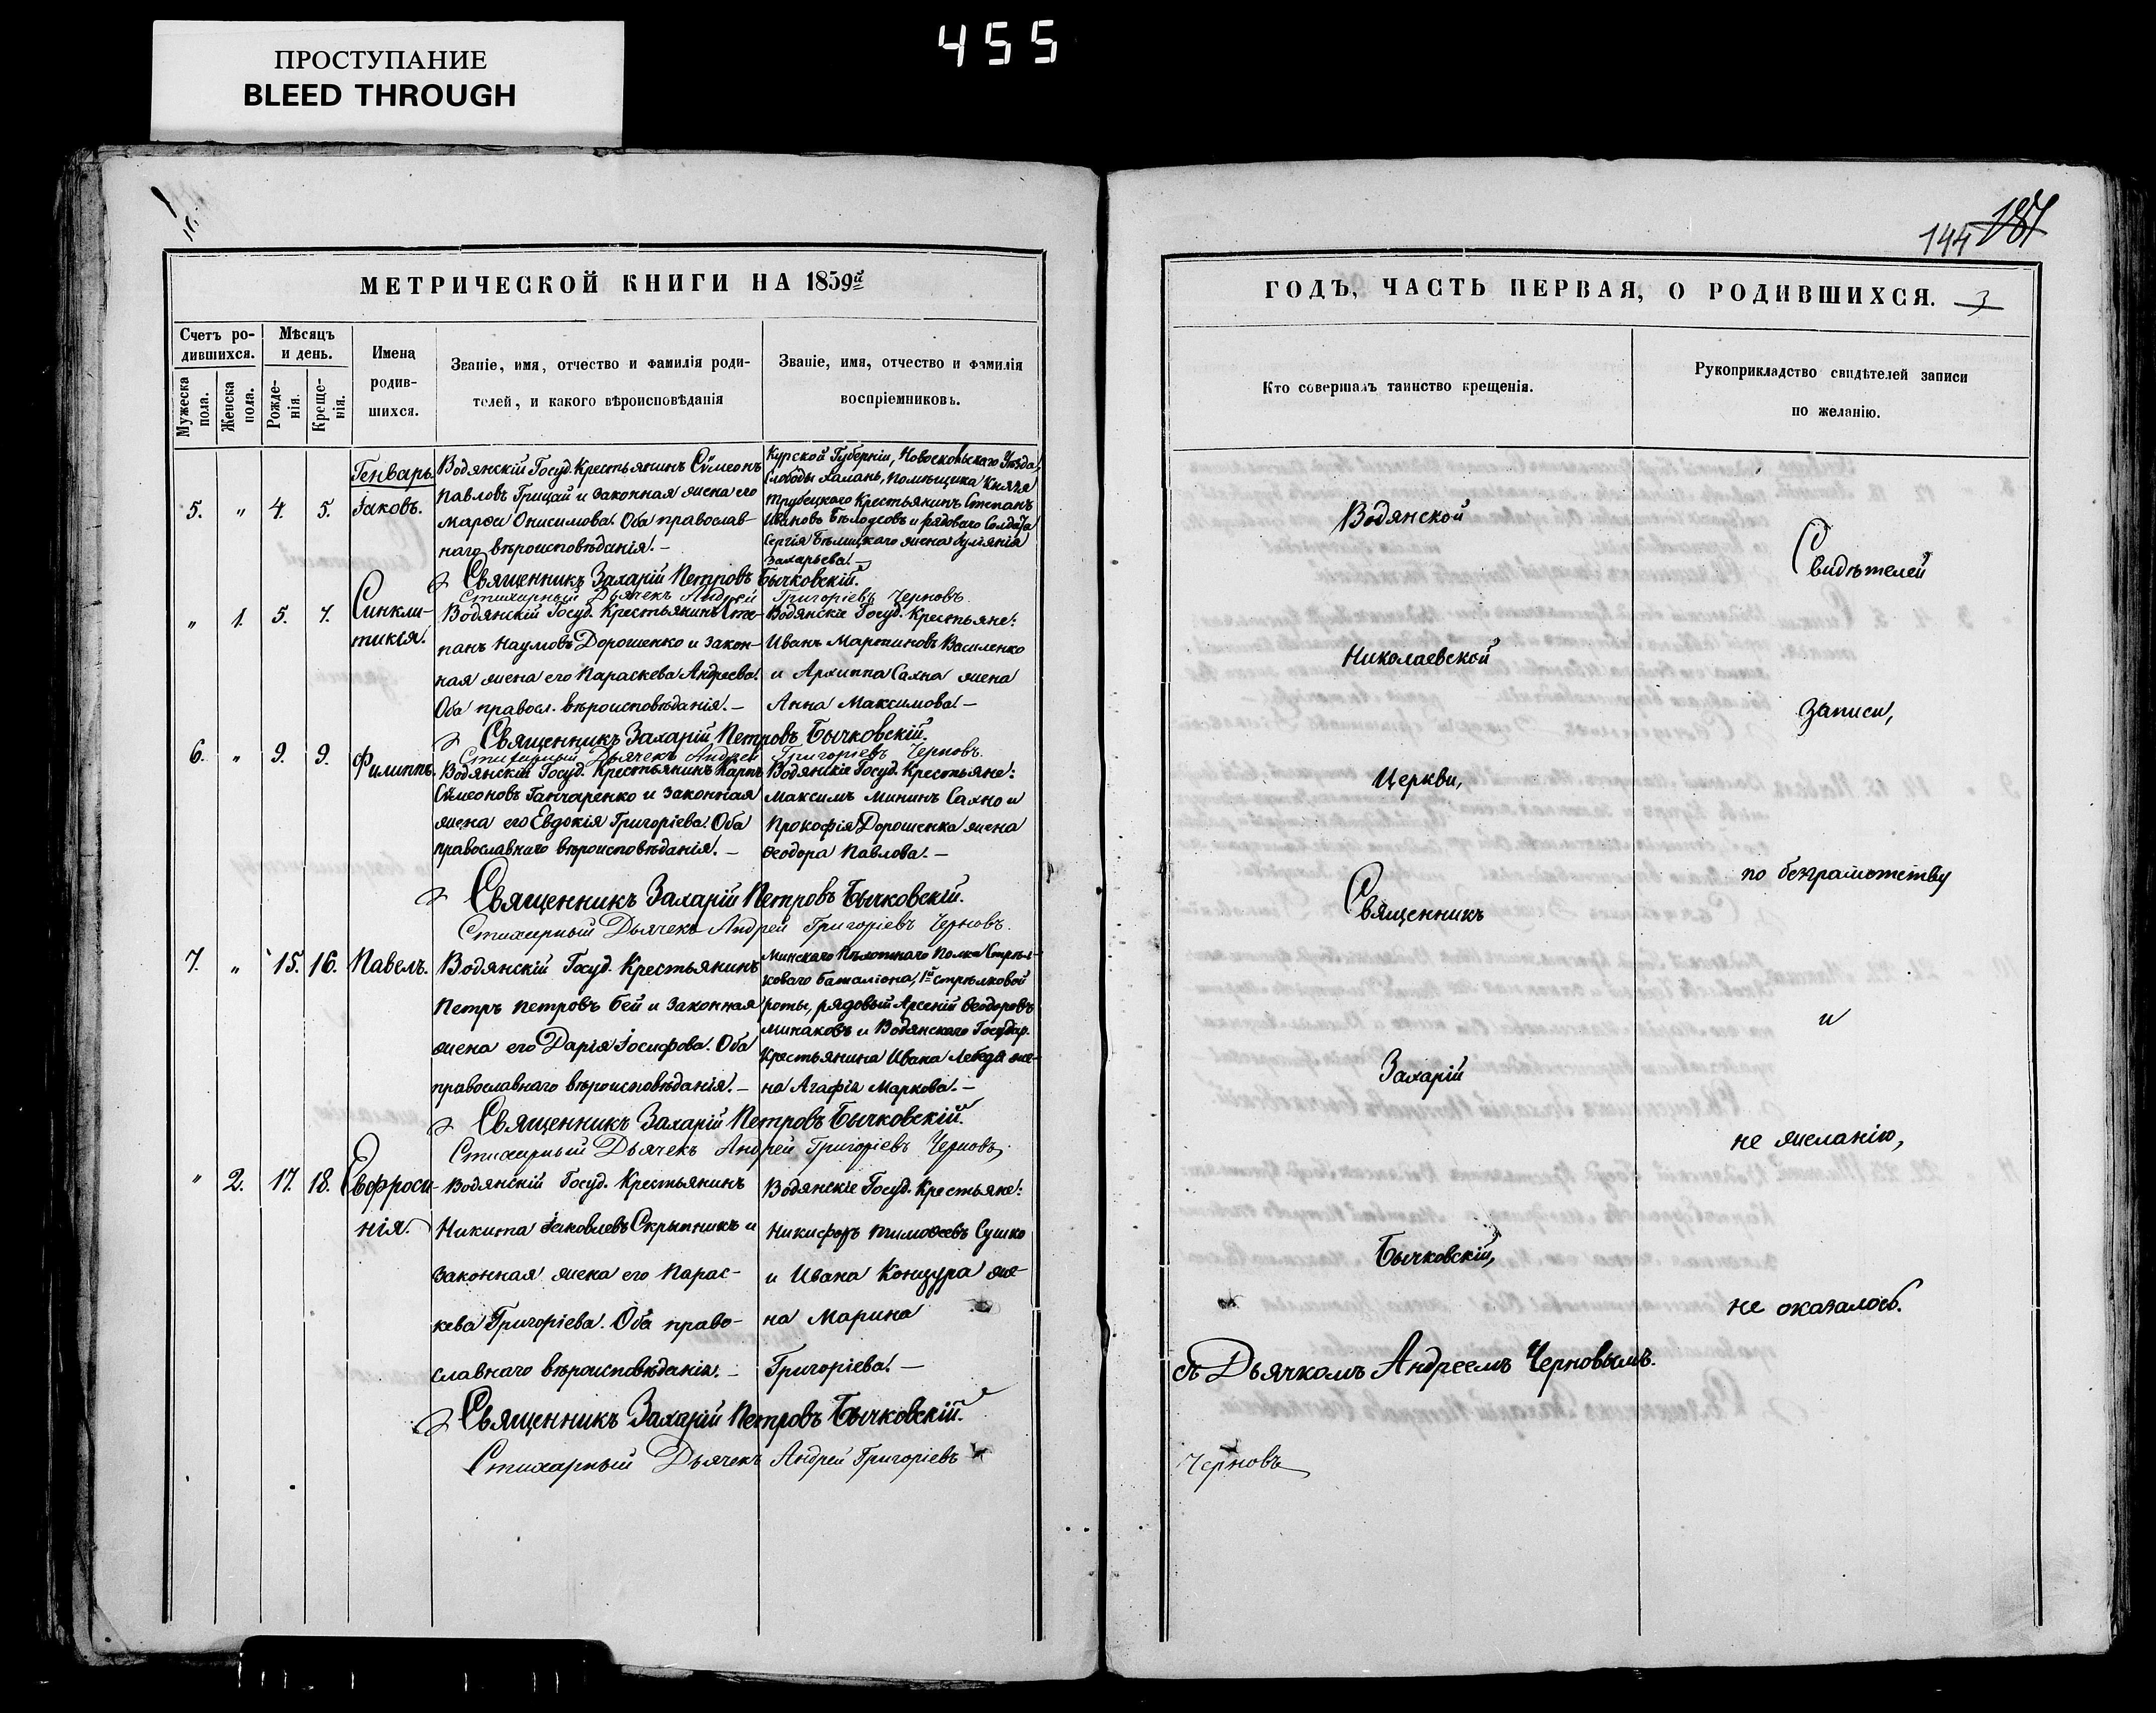 ПРОСТУПАНИЕ
BLEED THROUGH
455
МЕТРИЧЕСКОЙ КНИГИ НА 1859й
Счетъ ро-
дившихся.
Мужеска
пола.
Женска
пола.
Мѣсяцъ
и день.
Рожде-
нія.
Креще-
нія.
Имена
родив-
шихся.
Званіе, имя, отчество и фамилія роди-
телей, и какого вѣроисповѣданія
Званіе, имя, отчество и фамилія
воспріемниковъ.
Генварь.
5. " 4. 5. Іаковъ.
Водянскій Госуд. Крестьянинъ Сѵмеонъ
Павловъ Грицай и законная жена его
Марѳа Онисимова. Оба православ-
наго вѣроисповѣданія. —
Курской Губерніи, Новоскольскаго Уѣзда,
Слободы Халань, помѣщика Князя
Трубецкаго Крестьянинъ Степанъ
Ивановъ и рядоваго Солдата
Сергія Бѣлицкаго жена
Захарьева. —
Священникъ Захарій Петровъ Бычковскій.
Стихарный Дьячекъ Андрей Григоріевъ Черновъ.
" 1. 5. 7. Синкли-
тикія.
Водянскій Госуд. Крестьянинъ Сте-
панъ Наумовъ Дорошенко и закон-
ная жена его Параскева Андреева.
Оба правосл. вѣроисповѣданія. —
Водянскіе Госуд. Крестьяне:
Иванъ Мартиновъ Василенко
и Архиппа Сахна жена
Анна Максимова. —
Священникъ Захарій Петровъ Бычковскій.
Стихарный Дьячекъ Андрей Григоріевъ Черновъ.
6. " 9. 9. Филиппъ.
Водянскій Госуд. Крестьянинъ Карпъ
Сѵмеоновъ Ганчаренко и законная
жена его Евдокія Григоріева. Оба
православнаго вѣроисповѣданія. —
Водянскіе Госуд. Крестьяне:
Максимъ Мининъ Сахно и
Прокофія Дорошенка жена
Ѳеодора Павлова. —
Священникъ Захарій Петровъ Бычковскій.
Стихарный Дьячекъ Андрей Григоріевъ Черновъ.
7. " 15. 16. Павелъ.
Водянскій Госуд. Крестьянинъ
Петръ Петровъ Бей и законная
жена его Дарія Іосифова. Оба
православнаго вѣроисповѣданія. —
Минскаго Пѣхотнаго Полка Стрѣл-
коваго баталіона, 1й стрѣлковой
роты, рядовый Арсеній Ѳеодоровъ
Минаковъ и Водянскаго Государ.
Крестьянина Ивана Лебедя же-
на Агафія Маркова. —
Священникъ Захарій Петровъ Бычковскій.
Стихарный Дьячекъ Андрей Григоріевъ Черновъ.
" 2. 17. 18. Евфроси-
нія.
Водянскій Госуд. Крестьянинъ
Никита Іаковлевъ Скрыпникъ и
законная жена его Парас-
кева Григоріева. Оба право-
славнаго вѣроисповѣданія. —
Водянскіе Госуд. Крестьяне:
Никифоръ Тимоѳеевъ Сушко
и Ивана Концура же-
на Марина
Григоріева. —
Священникъ Захарій Петровъ Бычковскій.
Стихарный Дьячекъ Андрей Григоріевъ
144
ГОДЪ, ЧАСТЬ ПЕРВАЯ, О РОДИВШИХСЯ. 3
Кто совершалъ таинство крещенія.
Рукоприкладство свидѣтелей записи
по желанію.
Водянской
Николаевской
Церкви,
Священникъ
Захарій
Бычковскій,
съ Дьячкомъ Андреемъ Черновымъ.
Черновъ
Свидѣтелей
записи,
по безграмотству
и
не желанію,
не оказалось.